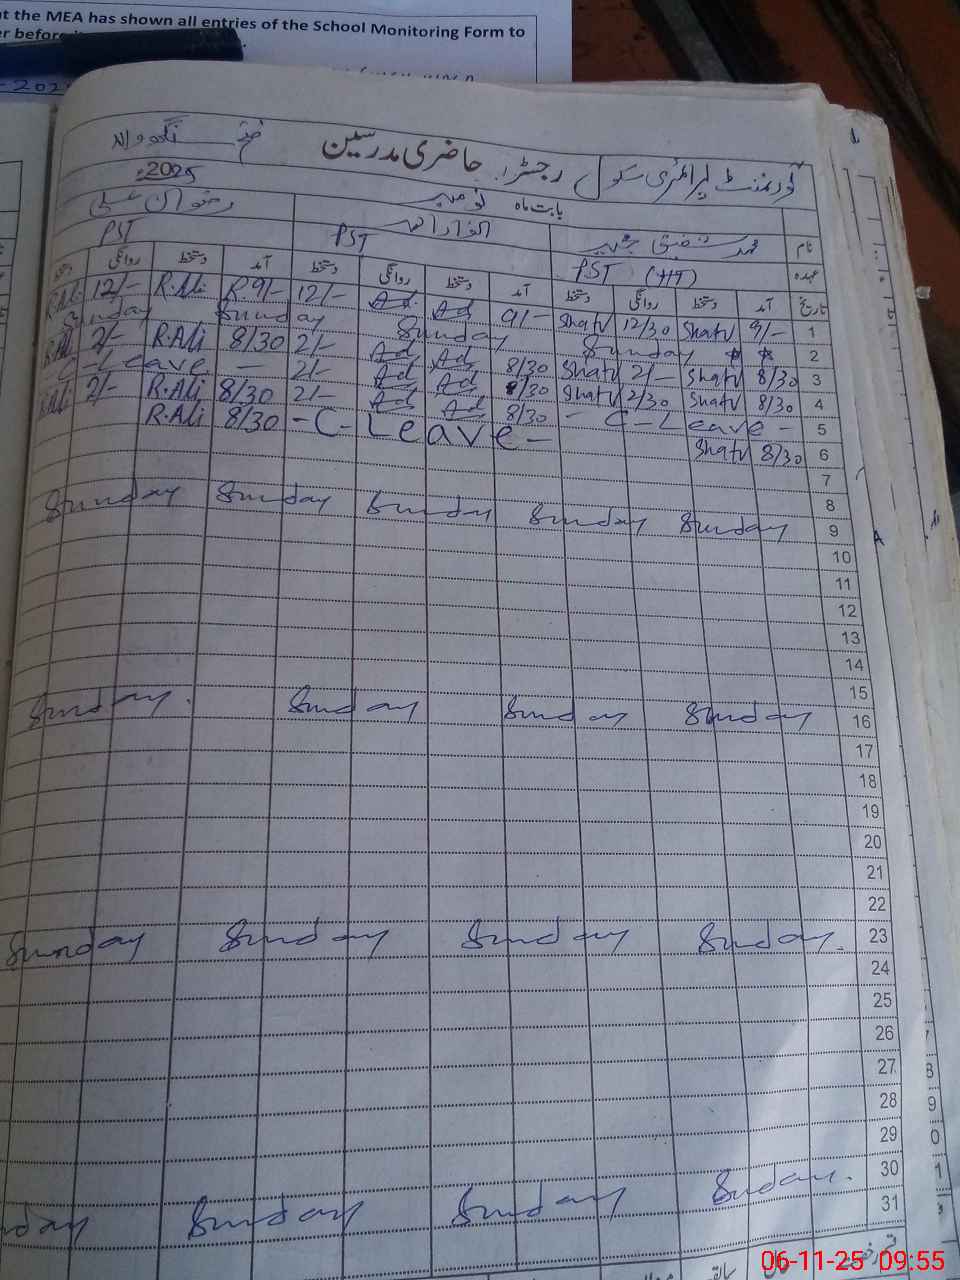 t the MEA has shown all entries of the School Monitoring Form to
r before
- 202
گورنمنٹ پرائمری سکول رجسٹر حاضری مدرسین
2025
بابت ماہ نومبر
نام محمد شفیق رضوان علی
عہدہ PST (HT) PST PST
تاریخ آمد دستخط روانگی دستخط آمد دستخط روانگی دستخط آمد دستخط روانگی دستخط
1 9/- Shafv 12/30 Shafv 9/- Ad Ad 12/- R.9/- R.Ali 12/- R.Ali
2 Sunday Sunday Sunday Sunday
3 8/30 Shafv 2/- Shafv 8/30 Ad Ad 2/- 8/30 R.Ali 2/- R.Ali
4 8/30 Shafv 2/30 Shafv 8/30 Ad Ad 2/- - C-Leave
5 - C-Leave - 8/30 Ad Ad 2/- 8/30 R.Ali 2/- R.Ali
6 8/30 Shafv - C-Leave - 8/30 R.Ali
7
8
9 Sunday Sunday Sunday Sunday Sunday
10
11
12
13
14
15
16 Sunday Sunday Sunday Sunday.
17
18
19
20
21
22
23 Sunday. Sunday Sunday Sunday
24
25
26
27
28
29
30 Sunday. Sunday Sunday nday
31
8
9
0
1
06-11-25 09:55